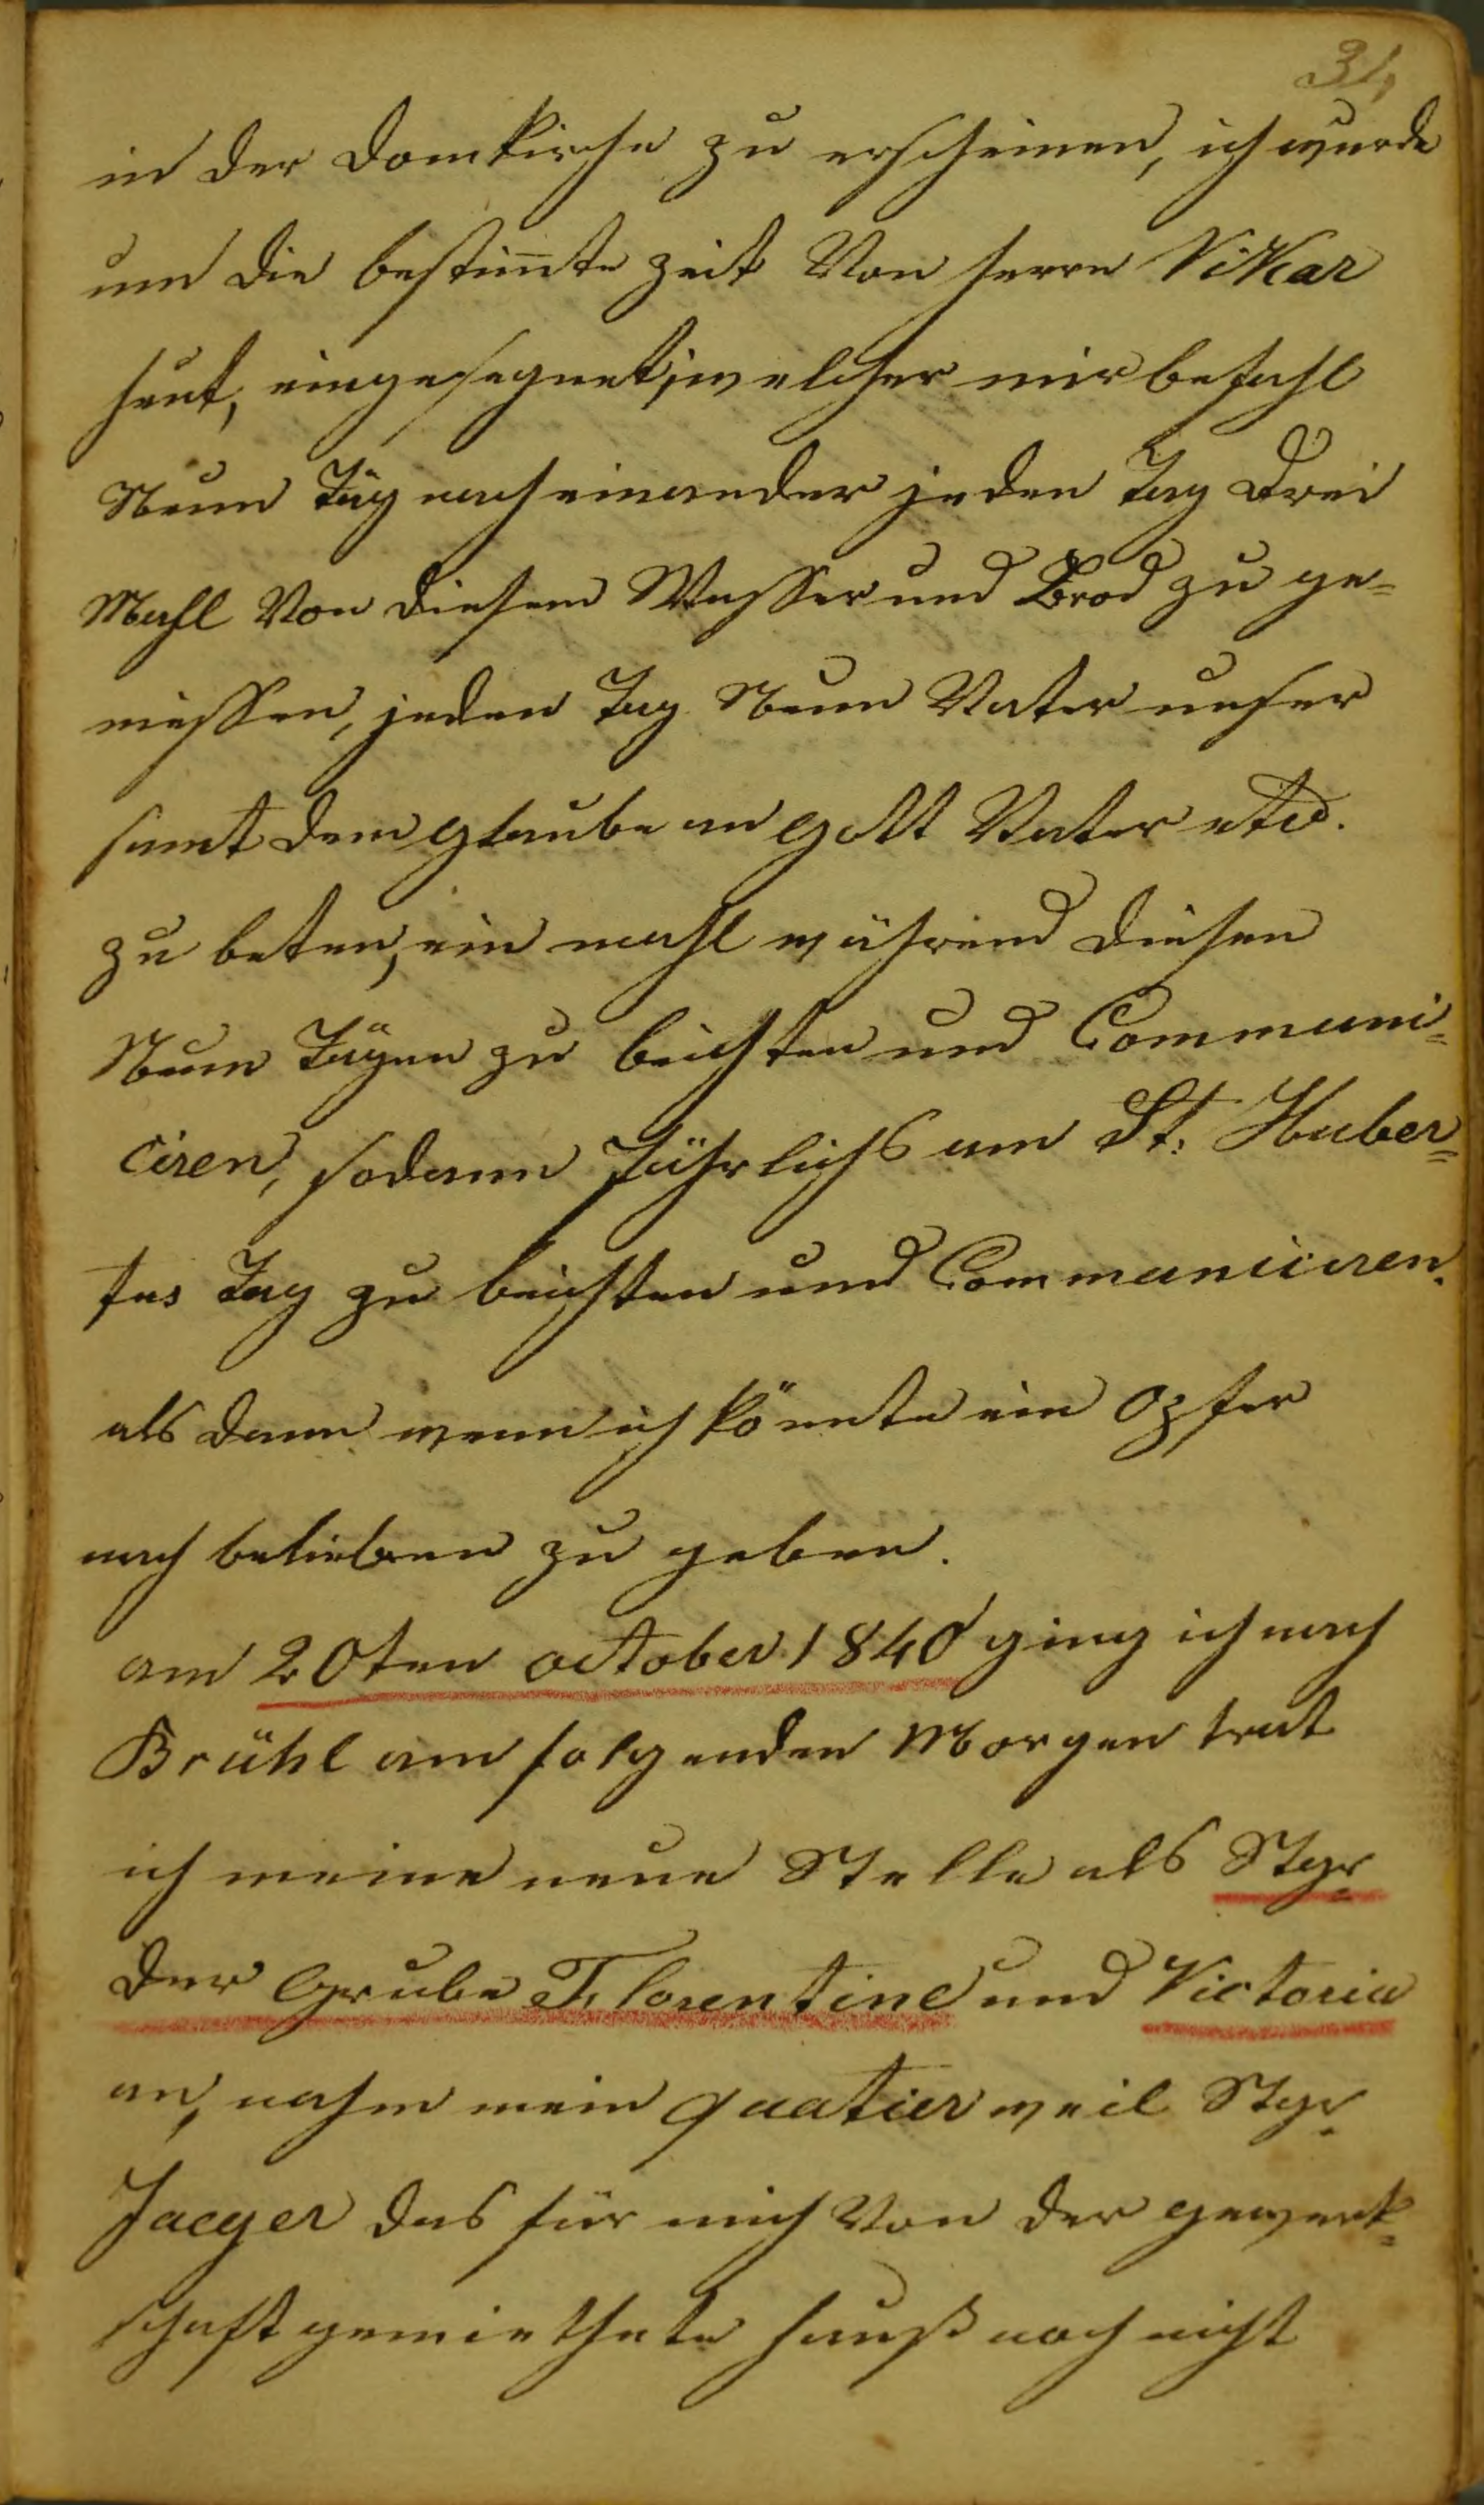 31,
in der Domkirche zu erscheinen, ich wurde
um die bestim̅te Zeit Von Herrn Vikar
Heut, eingesegnet, welcher mir befahl
Neun Täg nacheinander jeden Tag Drei
Mahl Von diesem Wasser und Brod zu ge=
niessen, jeden Tag Neun Vater unser
samt dem glaube an Gott Vater etc.
zu beten, ein mahl während diesen
Neun Tägen zu beichten und Communi=
ciren, sodann Jährlichs am St: Huber=
tus Tag zu beichten und Communiciren.
als dann wenn ich könnte ein Opfer
nach belieben zu geben.
am 20ten october 1840 ging ich nach
Brühl am folgenden Morgen trat
ich meine neue Stelle als Stgr
der Grube Florentine und Victoria
an, nahm mein quatier weil Stgr.
Jaeger das für mich Von der gewerk=
schaft gemiethete Hauß noch nicht